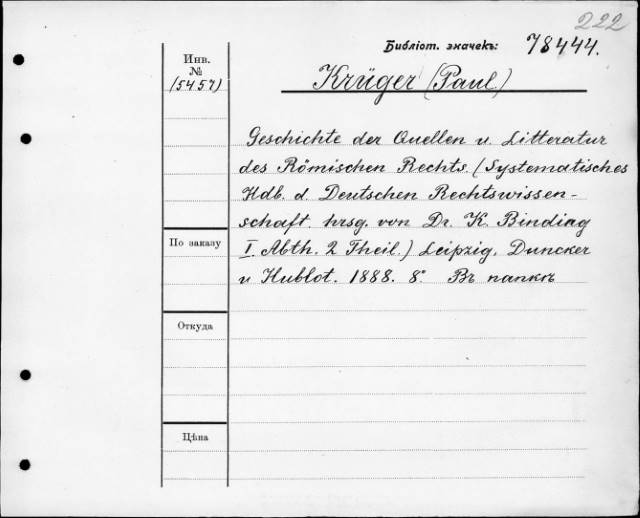 222
Библіот. значекъ: 78444.
Инв.
№
(5457)
Krüger (Paul)
Geschichte der Quellen u. Litteratur
des Römischen Rechts. (Systematisches
Hdb. d. Deutschen Rechtswissen-
schaft hrsg. von Dr. K. Binding
I. Abth. 2 Theil.) Leipzig, Duncker
u Hublot. 1888. 8°. Въ папкѣ
По заказу
Откуда
Цѣна